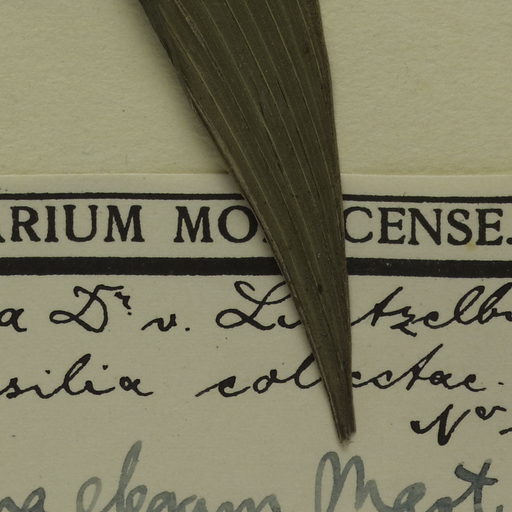 ARIUM MO CENSE.
a Dr. v. Lu tzelbu
silia col ectae.
No
elegans Mart.